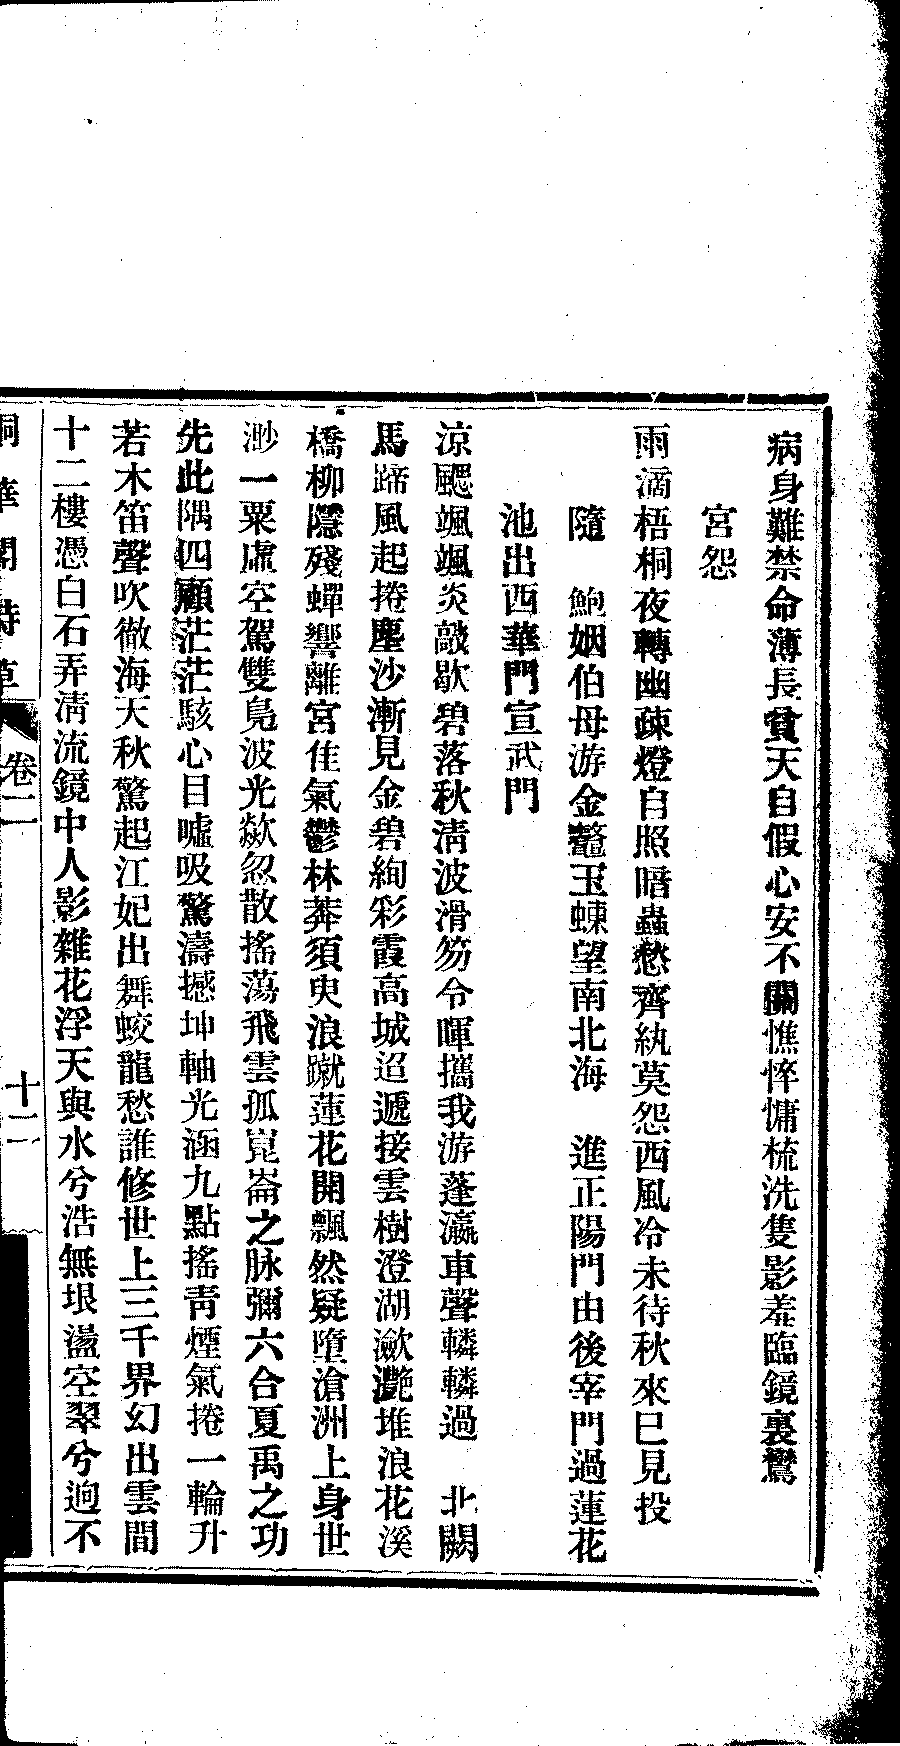 病身難禁命薄長貧天自假心安不關憔悴慵梳洗隻影羞臨鏡裏鸞
宮怨
雨滴梧桐夜轉幽疎燈自照暗蟲愁齊紈莫怨西風冷未待秋來已見投
隨　鮑姻伯母游金鼇玉蝀望南北海　進正陽門由後宰門過蓮花
池出西華門宣武門
涼颸颯颯炎敲歇碧落秋淸波滑笏令暉攜我游蓬瀛車聲轔轔過　北闕
馬蹄風起捲塵沙漸見金碧絢彩霞高城迢遞接雲樹澄湖瀲灧堆浪花溪
橋柳隱殘蟬響離宮佳氣鬱林莽須臾浪蹴蓮花開飄然疑墮滄洲上身世
渺一粟虛空駕雙鳧波光歘忽散搖蕩飛雲孤崑崙之脉彌六合夏禹之功
先此隅四顧茫茫駭心目噓吸驚濤撼坤軸光涵九點搖靑煙氣捲一輪升
若木笛聲吹徹海天秋驚起江妃出舞蛟龍愁誰修世上三千界幻出雲間
十二樓憑白石弄淸流鏡中人影雜花浮天與水兮浩無垠盪空翠兮逈不
桐華閣詩草
卷二
十二